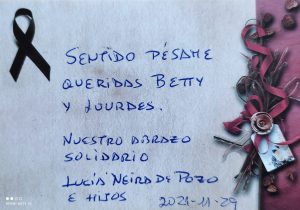 SENTIDO PÉSAME
QUERIDAS BETTY
Y LOURDES.
NUESTRO ABRAZO
SOLIDARIO
LUCÍA NEIRA DE POZO
E HIJOS
2021-11-29